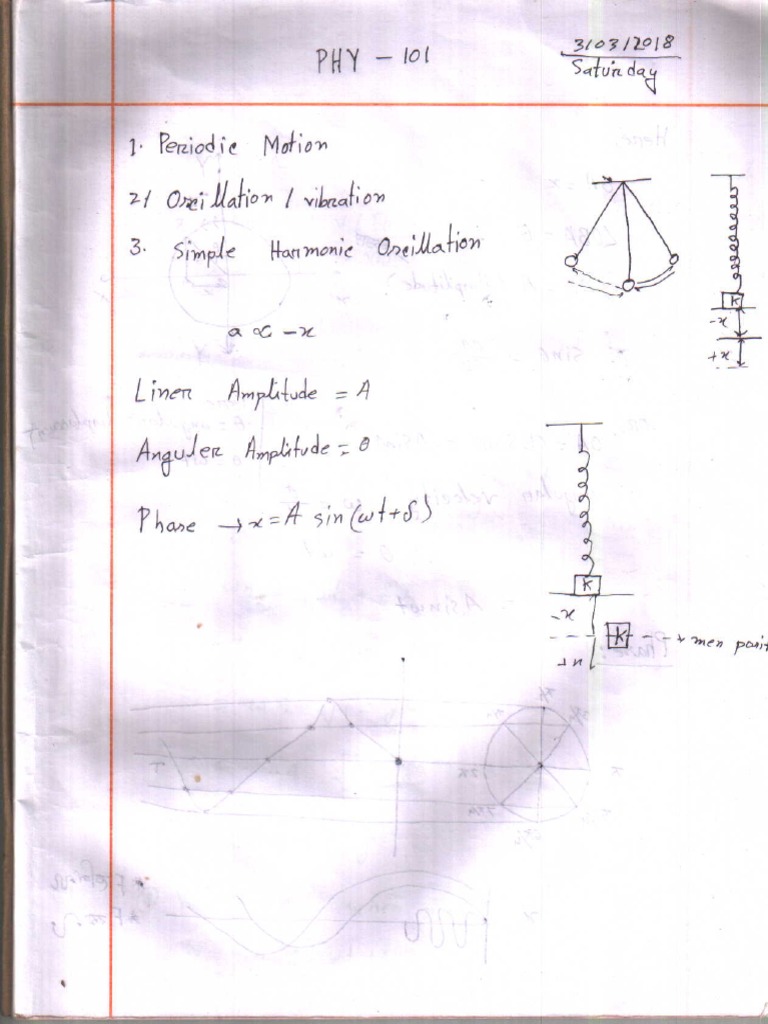 PHY - 101
3/03/2018
Saturday
1. Periodic Motion
2/ Oscillation / vibration
3. Simple Harmonic Oscillation
a ∝ -x
Liner Amplitude = A
Anguler Amplitude = θ
Phase → x = A sin(ωt+δ)
K
-x
+x
K
-x
K
men posit